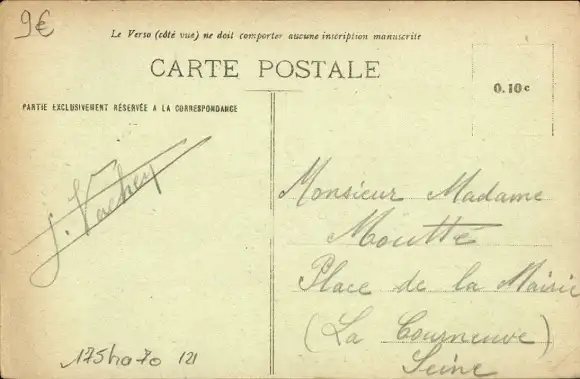 9€
Le Verso (côté vue) ne doit comporter aucune inscription manuscrite
CARTE POSTALE
0.10c
PARTIE EXCLUSIVEMENT RÉSERVÉE A LA CORRESPONDANCE
J. Vachey
Monsieur Madame
Moutté
Place de la Mairie
(La Courneuve)
Seine
175ha70 121